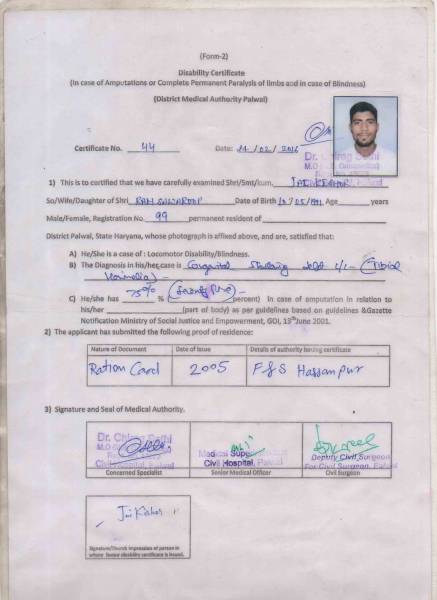 (Form-2)
Disability Certificate
(In case of Amputations or Complete Permanent Paralysis of limbs and in case of Blindness)
(District Medical Authority Palwal)
Certificate No. 44 Date:
1) This is to certified that we have carefully examined Shri/Smt/kum.
So/Wife/Daughter of Shri RAM SAWROOP Date of Birth Age years
Male/Female, Registration No. 99 permanent resident of
District Palwal, State Haryana, whose photograph is affixed above, and are, satisfied that:
A) He/She is a case of : Locomotor Disability/Blindness.
B) The Diagnosis in his/her case is Congenital
C) He/she has 75% % ( percent) In case of amputation in relation to
his/her (part of body) as per guidelines based on guidelines &Gazette
Notification Ministry of Social Justice and Empowerment, GOI, 13th June 2001.
2) The applicant has submitted the following proof of residence:
Nature of Document Date of Issue Details of authority issuing certificate
Ration Card 2005 F&S Hassanpur
3) Signature and Seal of Medical Authority.
Civil Hospital, Palwal
Deputy Civil Surgeon
For Civil Surgeon, Palwal
Concerned Specialist Senior Medical Officer Civil Surgeon
Jai Kishor
Signature/Thumb impression of person in
whose favour disability certificate is issued.